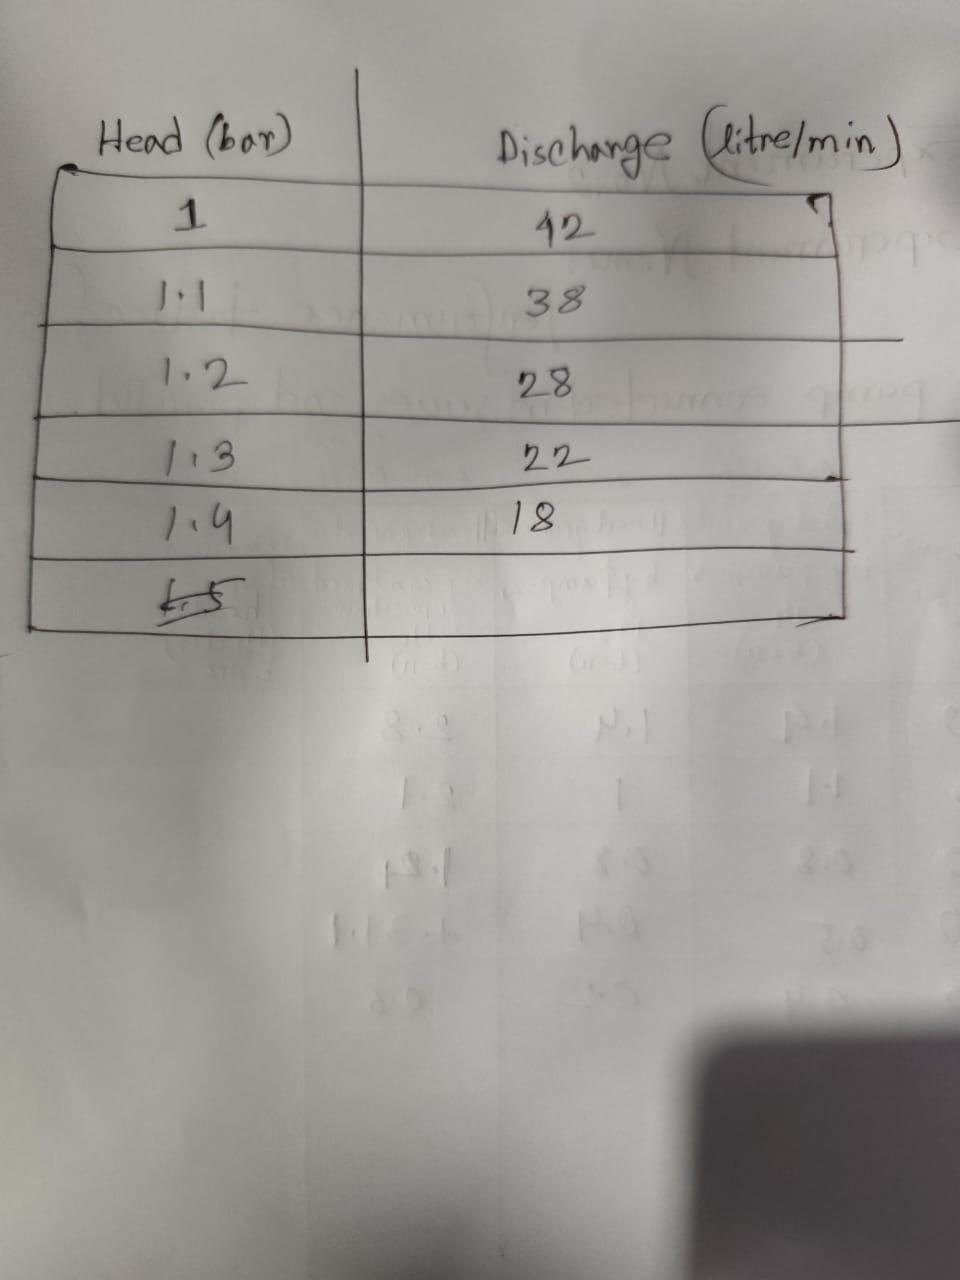 Head (bar) Discharge (litre/min)
1 42
1.1 38
1.2 28
1.3 22
1.4 18
1.5